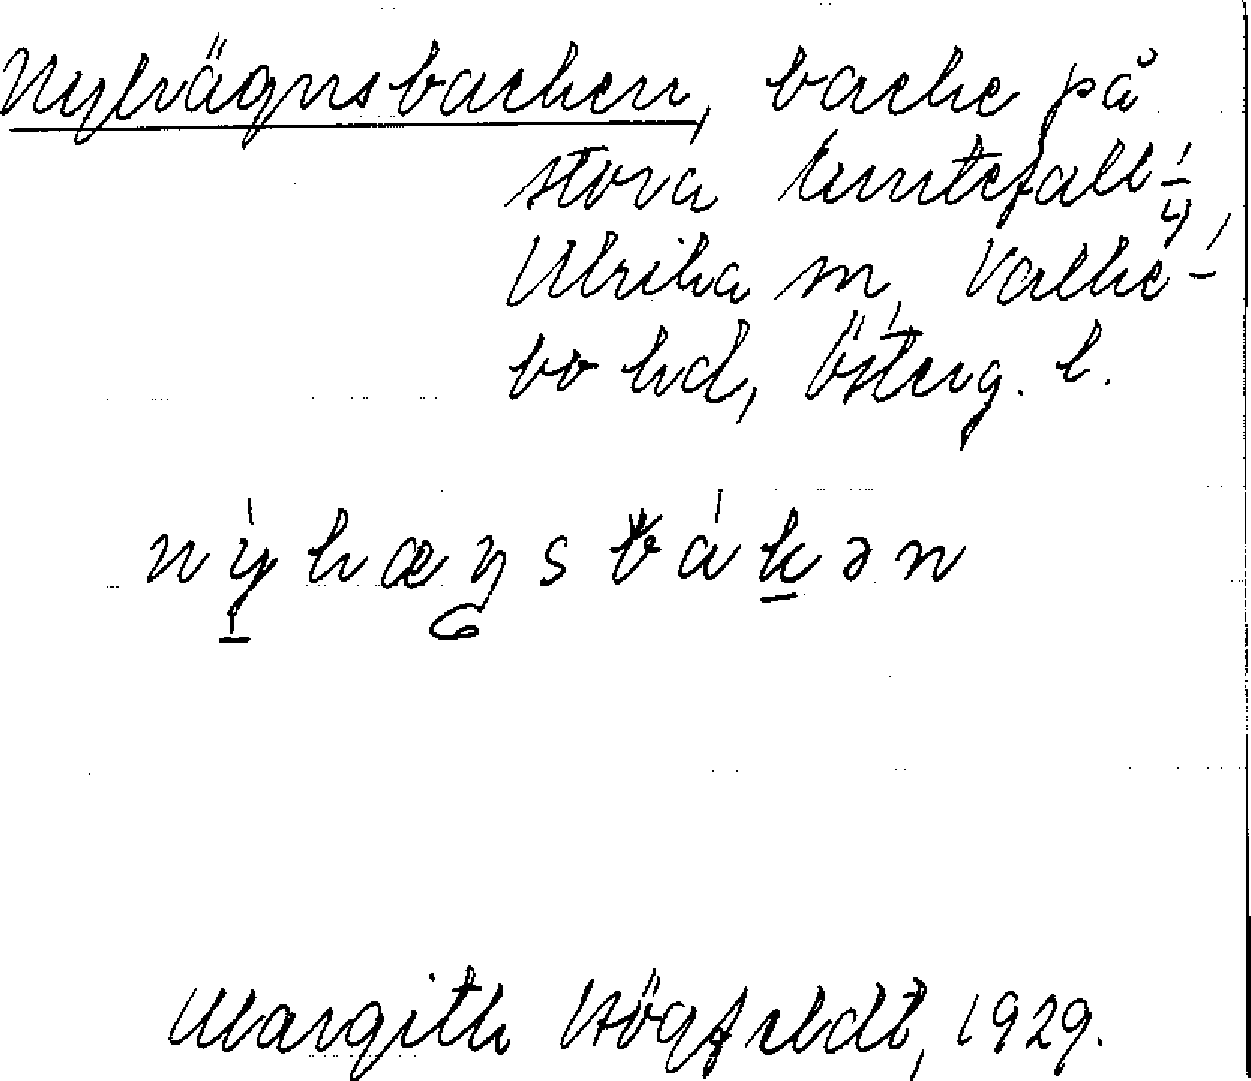 Nyhägnsbacken, backe på
stora Luntefall 1/4,
Ulrika sn, Valke-
bo hd, Österg. l.
nýhæŋsbákən
Margith Högfeldt, 1929.